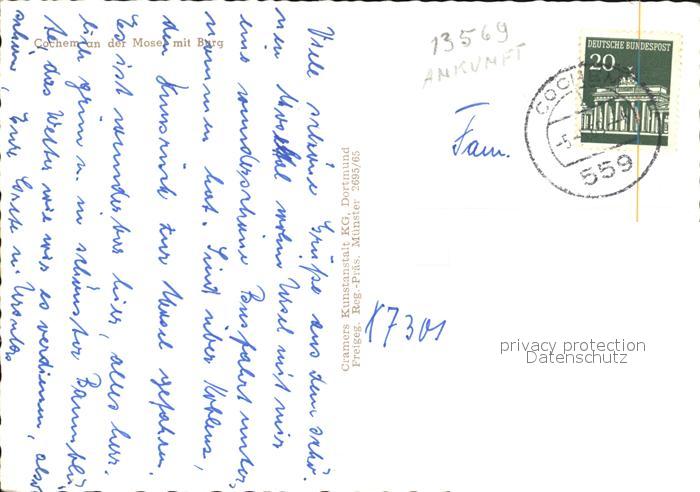 Cochem an der Mosel mit Burg
Viele schöne Grüße aus dem schö-
nen Moseltal wohin Ursel mit mir
eine wunderschöne Busfahrt unter-
nommen hat. Sind über Koblenz,
den Hunsrück zur Mosel gefahren.
Es ist wunderbar hier, alles herr-
lich grün u. in schönster Baumblü-
te das Wetter wie wir es verdienen, also
schön! Eure Grete u. Ursula
Cramers Kunstanstalt KG, Dortmund
Freigeg. Reg.-Präs. Münster 2695/65
13569
ANKUNFT
DEUTSCHE BUNDESPOST
20
COCHEM
559
Fam.
X7301
privacy protection
Datenschutz